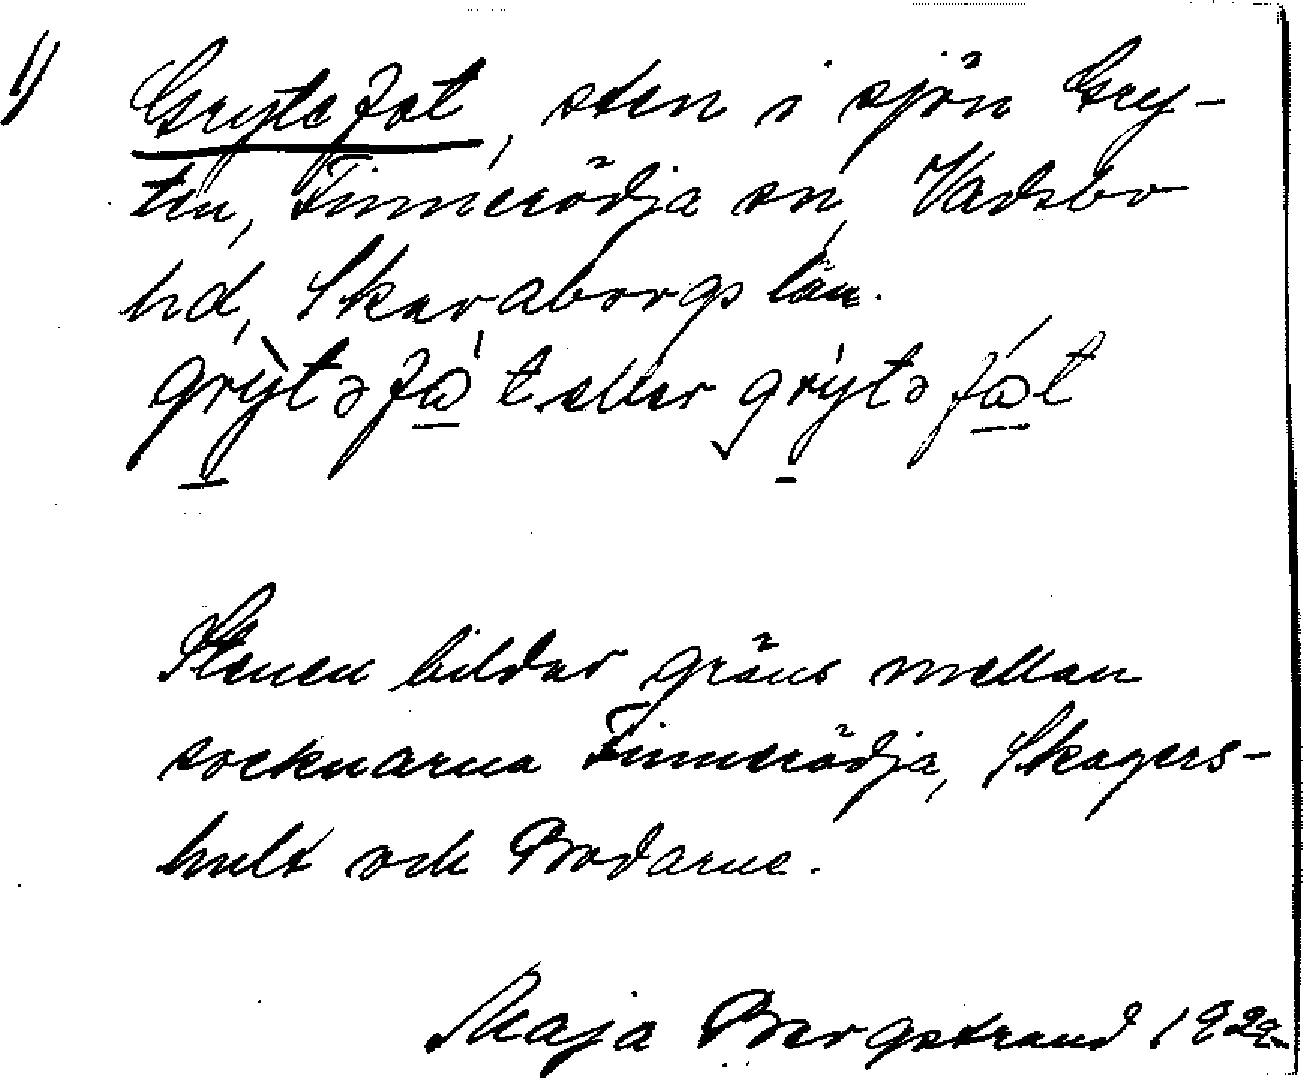 Grytefat, sten i sjön Gry-
ten, Finnerödja sn, Vadsbo
hd, Skaraborgs län.
eller
Stenen bildar gräns mellan
socknarna Finnerödja, Skagers-
hult och Bodarne.
Maja Bergstrand